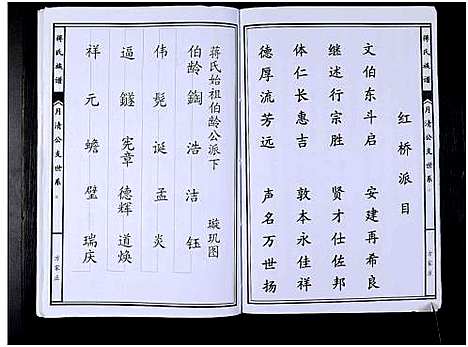 蒋氏族谱
《月清公支世系》
红桥派目
文伯东斗启 安建再希良
继述行宗胜 贤才仕佐邦
体仁长惠吉 敦本永佳祥
德厚流芳远 声名万世扬
蒋氏始祖伯龄公派下 璇玑图
伯龄 鋾 浩 洁 钰
伟 髡 诞 孟 炎
逼 鐩 宪章 德辉 道焕
祥 元 蟾 璧 瑞庆
蒋氏族谱
《月清公支世系》